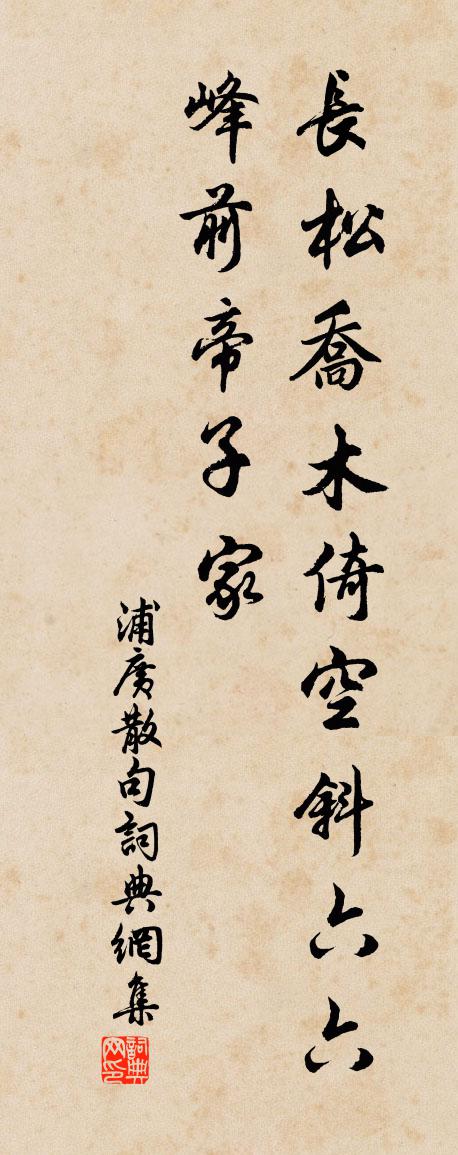 長松喬木倚空斜六六
峰前帝子家
浦廣散句詞典網集
詞典网印